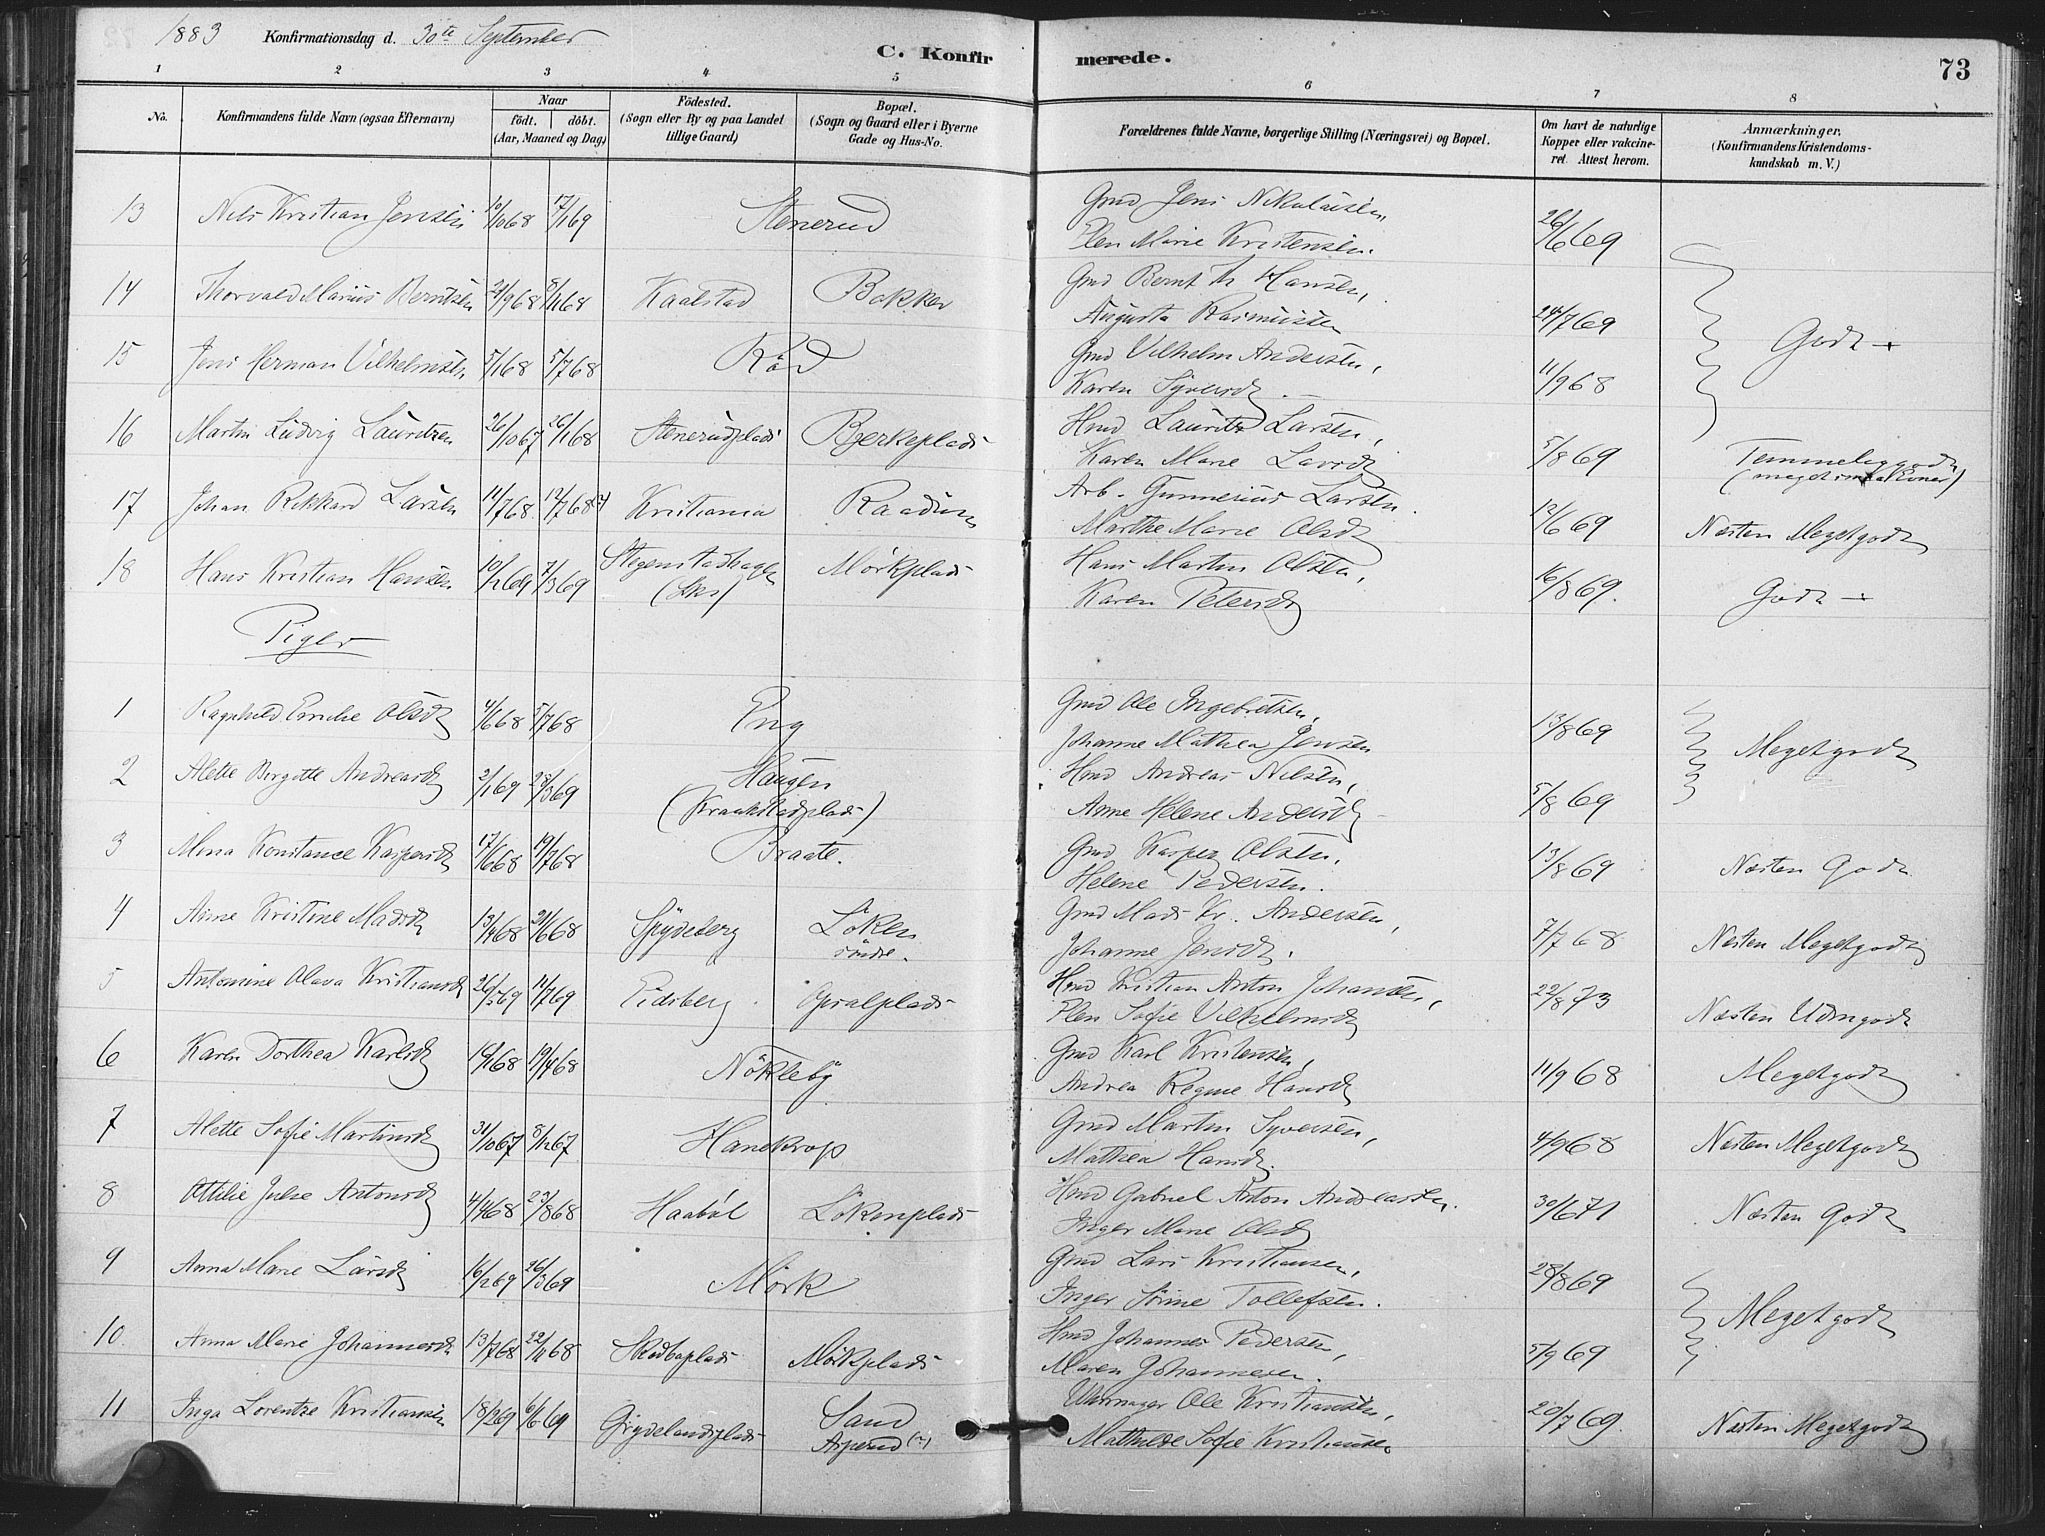 1883 Konfirmationsdag d. 30te September
C. Konfirmerede.
73
1 2 3 4 5 6 7 8
No. Konfirmandens fulde Navn (ogsaa Efternavn) Naar födt. döbt. (Aar, Maaned og Dag) Födested. (Sogn eller By og paa Landet tillige Gaard) Bopæl. (Sogn og Gaard eller i Byerne Gade og Hus-No. Forældrenes fulde Navne, borgerlige Stilling (Næringsvei) og Bopæl. Om havt de naturlige Kopper eller vakcineret. Attest herom. Anmærkninger. (Konfirmandens Kristendomskundskab m. V.)
13 Nils Kristian Jensen 10/10 68 17/1 69 Stenerud Gmd Jens Nikolaisen, 26/6 69
Elen Marie Kristensen.
14 Thorvald Marius Berntsen 24/9 68 8/11 68 Kaalstad Bakker Gmd Bernt Th Hansen, 24/7 69
Augusta Rasmussen
15 Jens Herman Vilhelmsen 5/1 68 5/7 68 Röd Gmd Vilhelm Andersen, 11/9 68 Godt
Karen Syversd
16 Martin Ludvig Lauritzen 26/10 67 26/1 68 Stenerudplads Bjerkeplads Hmd Lauritz Larsen, 5/8 69 Temmelig godt
Karen Marie Larsd
17 Johan Rikkard Larsen 11/7 68 12/7 68 Kristiania Raadum Arb. Gunnerius Larsen. 12/6 69 Næsten Megetgodt
Marthe Marie Olsd
18 Hans Kristian Hansen 10/1 69 7/3 69 Stegenstadhagen Mörkplads Hans Martin Olsen, 16/8 69. Godt
(Skis) Karen Petersd
Piger
1 Ragnhild Emilie Olsd 4/6 68 5/7 68 Eng Gmd Ole Ingebretsen, 13/8 69
Johanne Mathea Jensen
2 Alette Birgitte Andreasd 2/1 69 28/3 69 Haugen Hmd Andreas Nilsen, 5/8 69 Megetgodt
(Kraakstadplads) Anne Helene Andersd
3 Mina Konstance Kaspersd 17/6 68 19/7 68 Braate. Gmd Kasper Olsen, 13/8 69 Næsten Godt
Helene Pedersen.
4 Anne Kristine Madsd 13/4 68 21/6 68 Spydeberg Löken Gmd Mads Kr. Andersen, 7/7 68 Næsten Megetgodt
söndre. Johanne Jensd.
5 Antonine Olava Kristiansd 26/5 69 11/7 69 Eidsberg Opsalplads Hmd Kristian Anton Johansen, 22/8 73 Næsten Udmgodt
Elen Sofie Vilhelmsd
6 Karen Dorthea Karlsd 19/4 68 Nökleby Gmd Karl Kristensen, 11/9 68 Megetgodt
Andrea Regine Hansd
7 Alette Sofie Martinsd 31/10 67 8/12 67 Hanekrop Gmd Martin Syversen, 4/9 68 Næsten Megetgodt
Mathea Hansd.
8 Ottilie Julie Antonsd 4/4 68 23/8 68 Haaböl Lökenplads Hmd Gabriel Anton Andreassen. 30/6 71 Næsten Godt
Inger Marie Olsd
9 Anna Marie Larsd 16/2 69 26/3 69 Mörk Gmd Lars Kristiansen, 28/8 69
Inger Sörine Tollefsen.
10 Anna Marie Johannesd 13/7 68 22/11 68 Skodboplads Mörkplads Hmd Johannes Pedersen, 5/9 69 Megetgodt
Maren Johannesen.
11 Inga Lorentze Kristiansen 18/2 69 6/6 69 Grydelandsplads Sand Uhrmager Ole Kristiansen, 20/7 69. Næsten Megetgodt
Asperud Mathilde Sofie Kristiansen